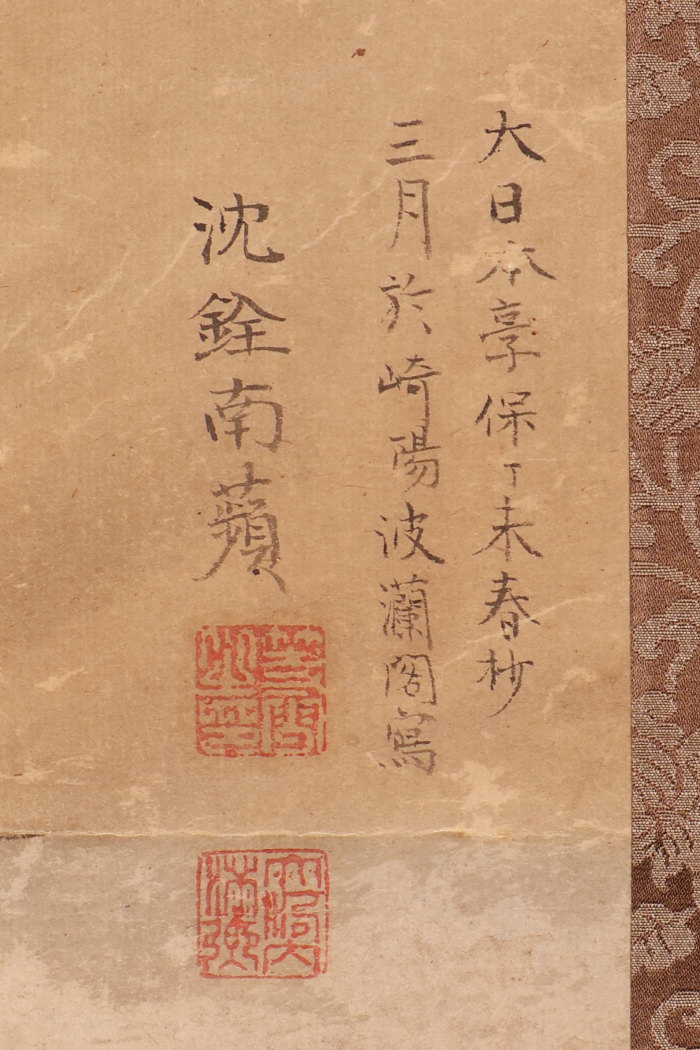 大日本享保丁未春杪
三月於崎陽波瀾閣寫
沈銓南蘋